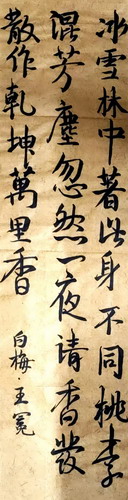 冰雪林中著此身不同桃李
混芳塵忽然一夜清香發
散作乾坤萬里香
白梅·王冕